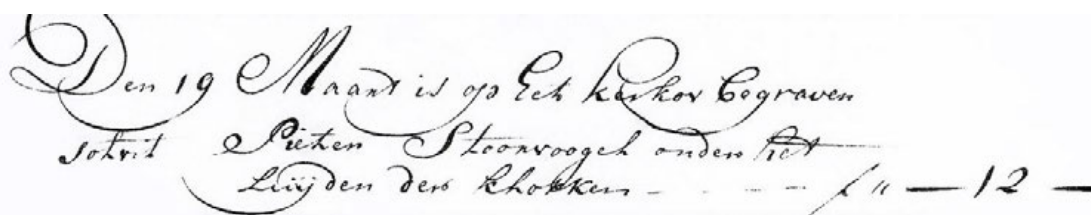 Den 19 Maart is op het kerkhov begraven
Pieter Stoorvogel onder het
Luijden der khokken - - - - ƒ " — 12 —